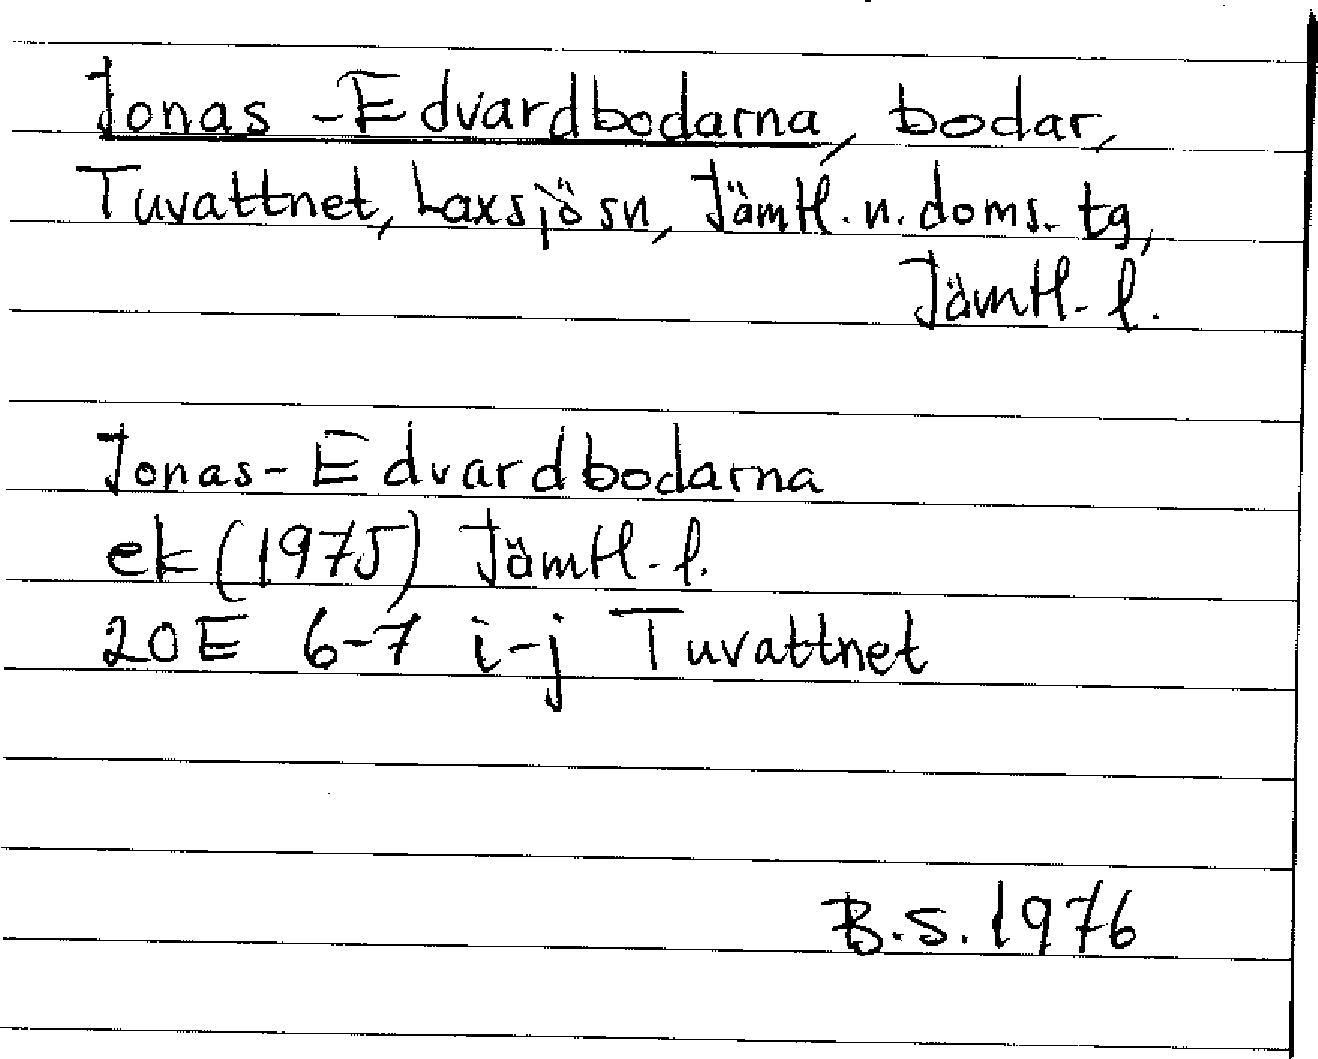 Jonas-Edvardbodarna, bodar,
Tuvattnet, Laxsjö sn, Jämtl. n. doms. tg,
Jämtl. l.
Jonas-Edvardbodarna
ek (1975) Jämtl. l.
20E 6-7 i-j Tuvattnet
B.S. 1976